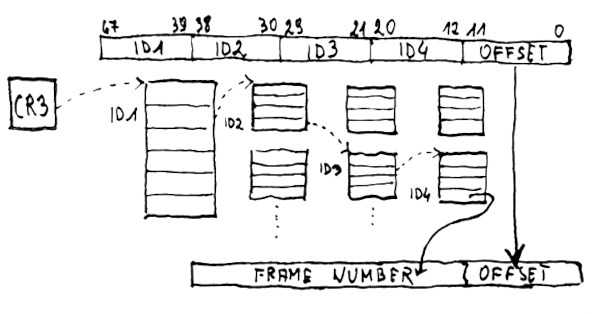 47 39 38 30 29 21 20 12 11 0
ID1 ID2 ID3 ID4 OFFSET
CR3
ID1
ID2
ID3
ID4
FRAME NUMBER OFFSET